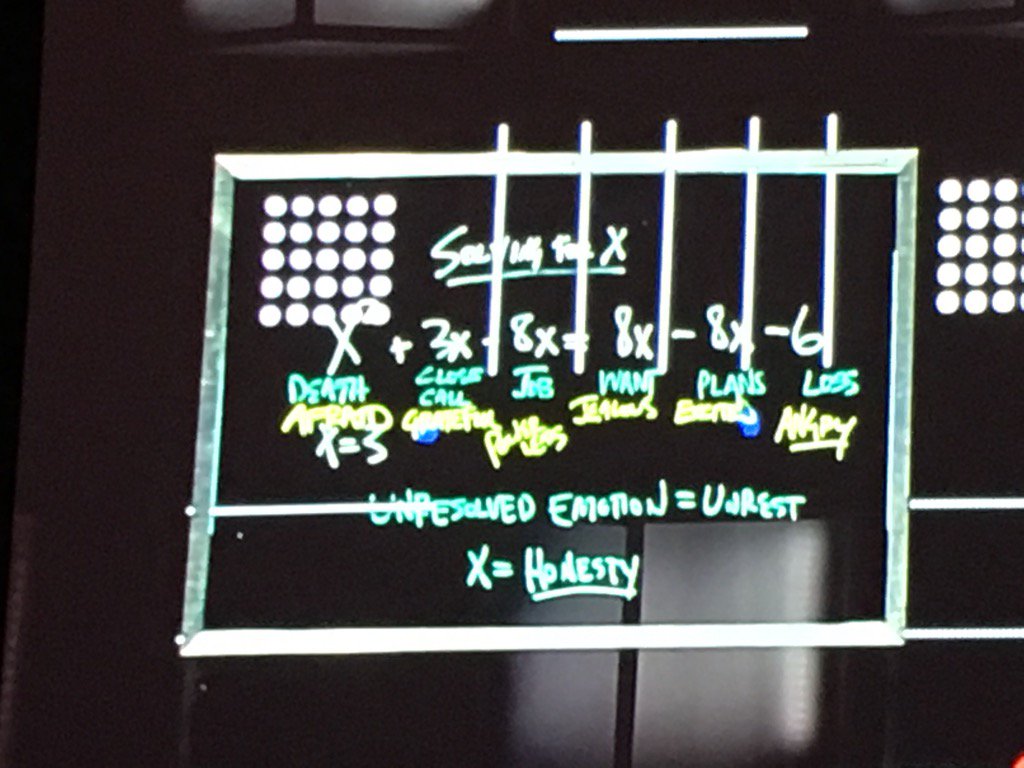 SOLVING FOR X
X² + 3x - 8x = 8x - 8x - 6
DEATH CLOSE CALL JOB WANT PLANS LOSS
AFRAID GRATEFUL POWERLESS JEALOUS EXCITED ANGRY
X=3
UNRESOLVED EMOTION = UNREST
X = HONESTY